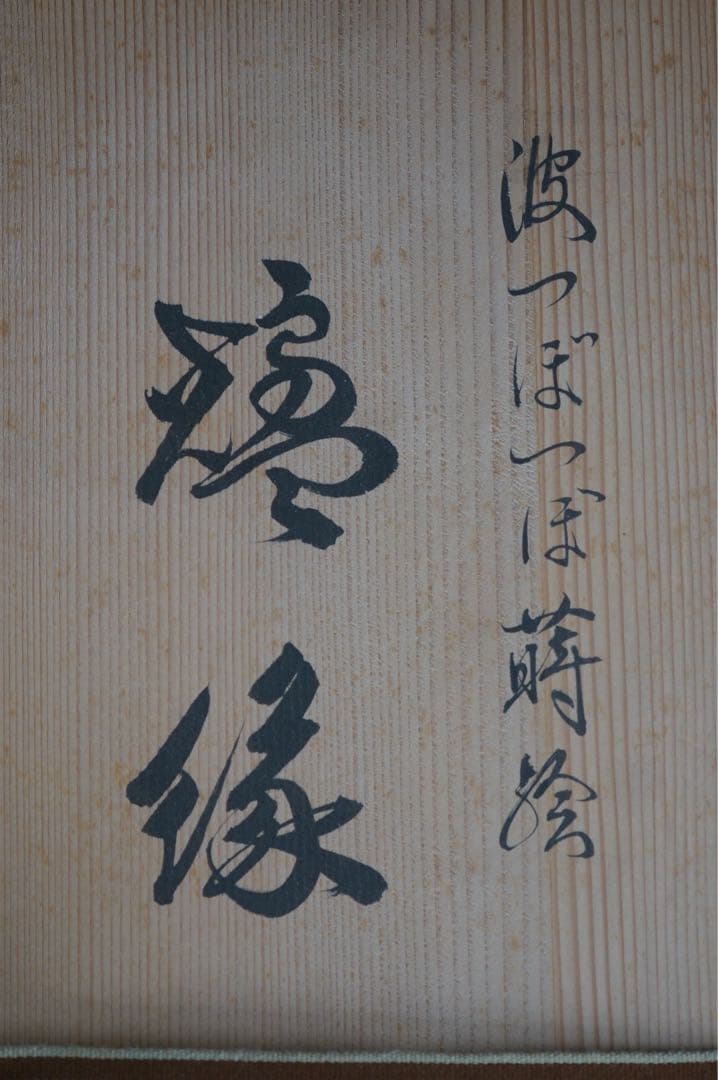 波つぼつぼ蒔絵
爐縁